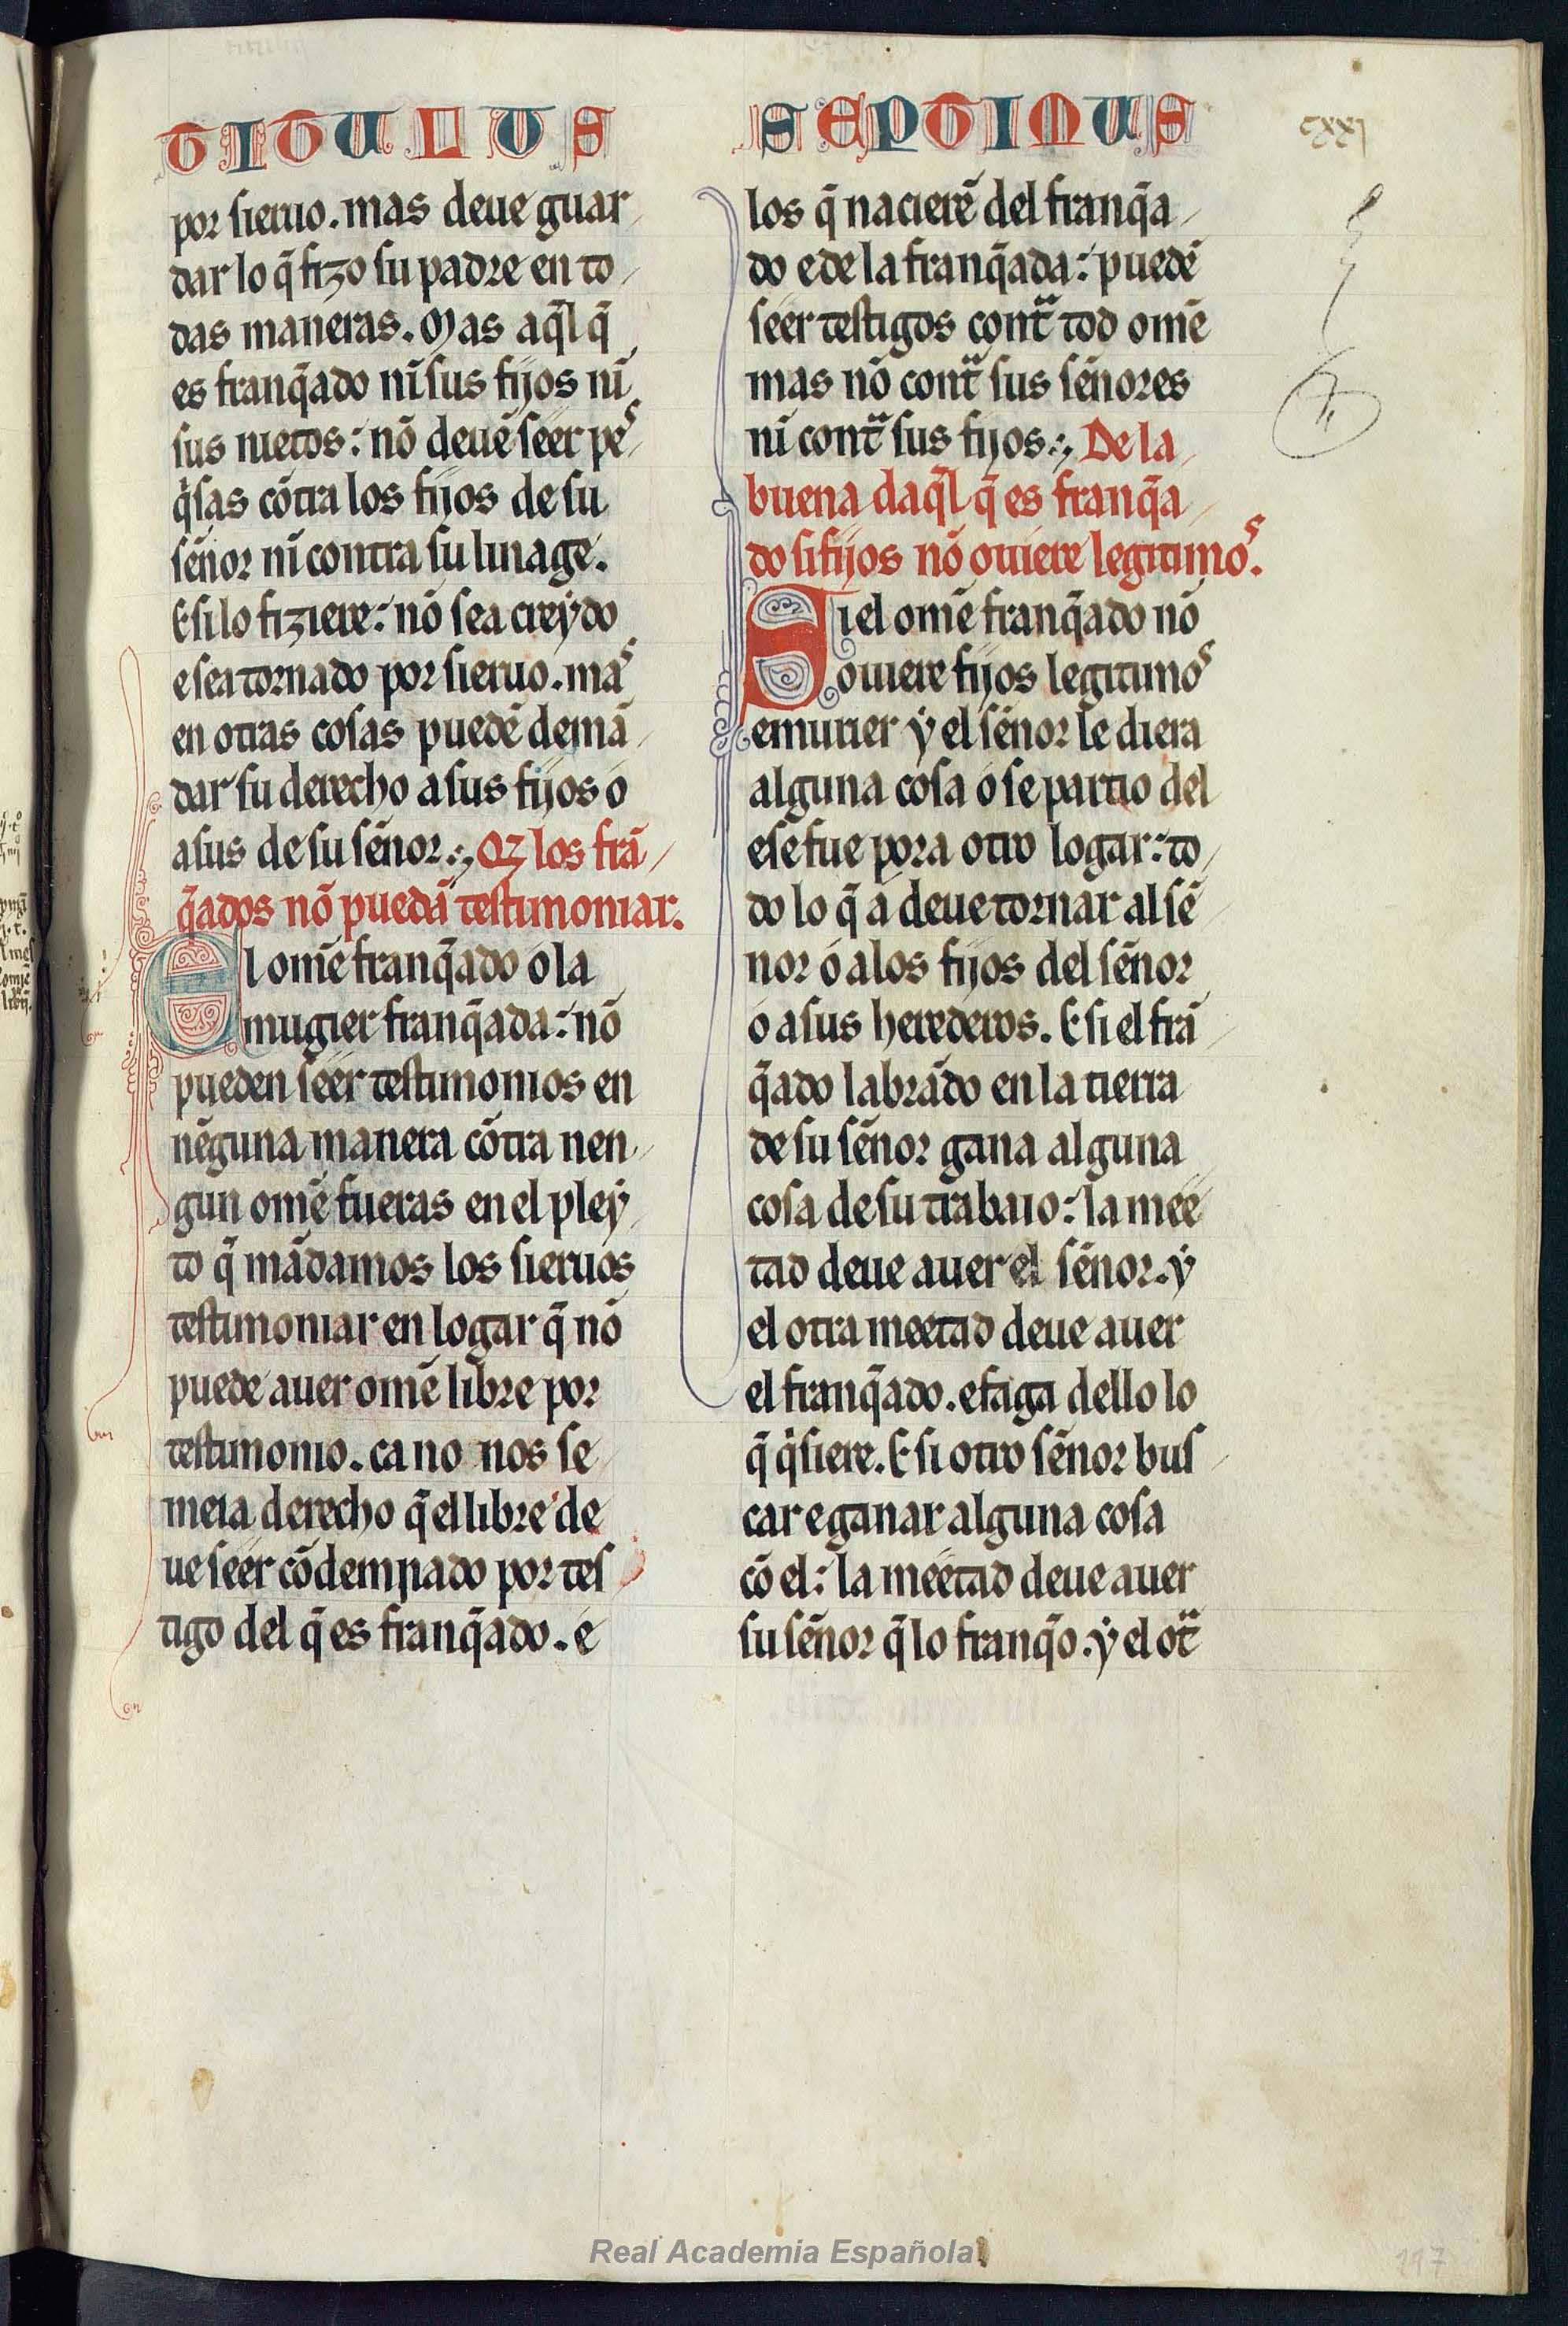 TITULUS SEPTIMUS
cxxj
por sieruo. mas deue guar
dar lo q̃ fizo su padre en to
das maneras. Mas aq̃l q̃
es franq̃ado nĩ sus fijos nĩ
sus nietos: nõ deuẽ seer pes
q̇sas cõtra los fijos de su
sẽnor nĩ contra su linage.
E si lo fiziere: nõ sea creẏdo
e sea tornado por sieruo. mas
en otras cosas puedẽ demã
dar su derecho a sus fijos o
a sus de su sẽnor. Qz los frã
q̃ados nõ puedã testimoniar.
El omẽ franq̃ado o la
mugier franq̃ada: nõ
pueden seer testimonios en
nẽguna manera cõtra nen
gun omẽ fueras en el pleẏ
to q̃ mãdamos los sieruos
testimoniar en logar q̃ nõ
puede auer omẽ libre por
testimonio. ca no nos se
meia derecho q̃ el libre de
ue seer cõdempnado por tes
tigo del q̃ es franq̃ado. e
los q̃ nacierẽ del franq̃a
do e de la franq̃ada: puedẽ
seer testigos contᷓ tod omẽ
mas nõ contᷓ sus sẽnores
nĩ contᷓ sus fijos. De la
buena daq̃l q̃ es franq̃a
do si fijos nõ ouiere legitimos.
Si el omẽ franq̃ado nõ
ouiere fijos legitimos
e murier ẏ el sẽnor le diera
alguna cosa o se partio del
e se fue pora otro logar: to
do lo q̃ a deue tornar al sẽ
nor o a los fijos del sẽnor
o a sus herederos. E si el frã
q̃ado labrãdo en la tierra
de su sẽnor gana alguna
cosa de su trabaio: la mee
tad deue auer el sẽnor. ẏ
el otra meetad deue auer
el franq̃ado. e faga dello lo
q̃ q̇siere. E si otro sẽnor bus
car e ganar alguna cosa
cõ el: la meetad deue auer
su sẽnor q̃ lo franq̃o. ẏ el otᷓ
Real Academia Española
117